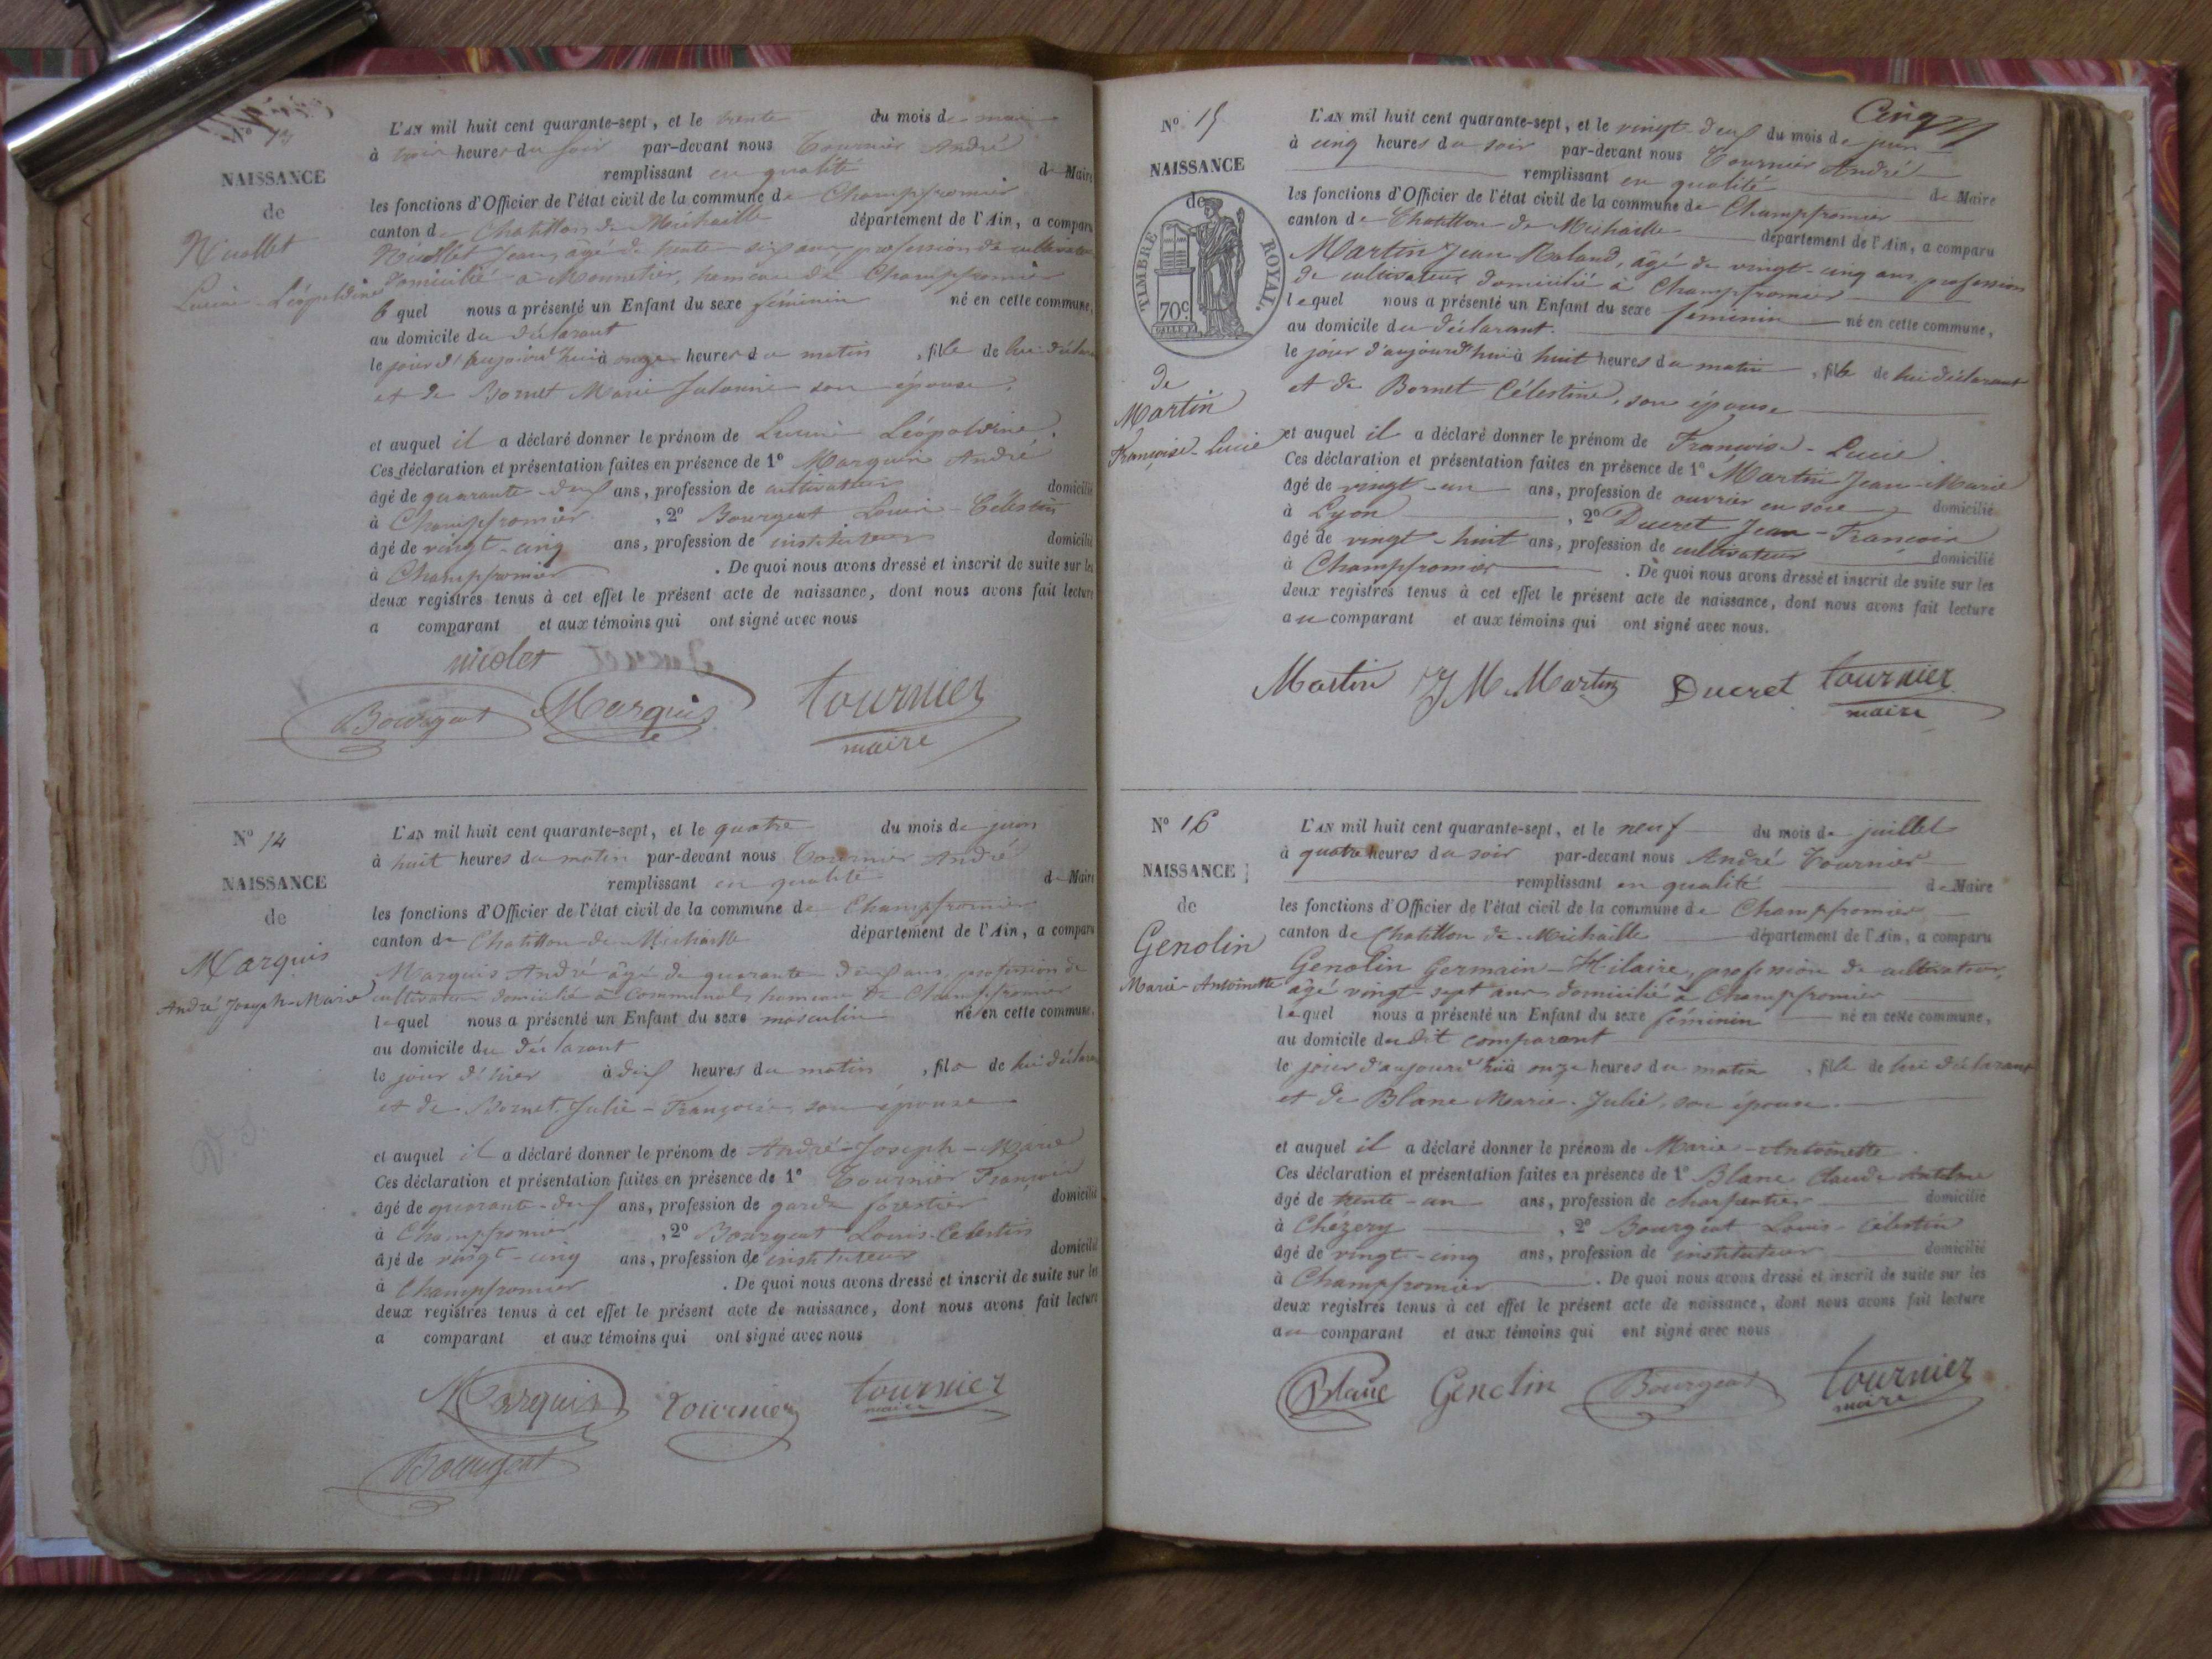 13
NAISSANCE
de
Nicollet
Lucine-Léopoldine
L'AN mil huit cent quarante-sept, et le trente du mois de mai
à trois heures du soir par-devant nous Tournier André
remplissant en qualité de Maire
les fonctions d'Officier de l'état civil de la commune de Champfromier
canton de Chatillon de Michaille département de l'Ain, a comparu
Nicollet Jean, âgé de trente six ans, profession de cultivateur
domicilié à Monnetier, hameau de Champfromier
lequel nous a présenté un Enfant du sexe féminin né en cette commune,
au domicile du déclarant
le jour d'aujourd'hui à onze heures du matin, fille de lui déclarant
et de Bornet Marie son épouse,
et auquel il a déclaré donner le prénom de Léopoldine.
Ces déclaration et présentation faites en présence de 1º Marquis André
âgé de quarante-deux ans, profession de cultivateur domicilié
à Champfromier, 2º Bourgeat Louis-Célestin
âgé de vingt-cinq ans, profession de instituteur domicilié
à Champfromier. De quoi nous avons dressé et inscrit de suite sur les
deux registres tenus à cet effet le présent acte de naissance, dont nous avons fait lecture
a comparant et aux témoins qui ont signé avec nous
nicolet
Bourgeat Marquis tournier
maire
Nº 14
NAISSANCE
de
Marquis
André Joseph-Marie
L'AN mil huit cent quarante-sept, et le quatre du mois de juin
à huit heures du matin par-devant nous Tournier André
remplissant en qualité de Maire
les fonctions d'Officier de l'état civil de la commune de Champfromier
canton de Chatillon de Michaille département de l'Ain, a comparu
Marquis André âgé de quarante deux ans, profession de
cultivateur domicilié à Communal, hameau de Champfromier
lequel nous a présenté un Enfant du sexe masculin né en cette commune,
au domicile du déclarant
le jour d'hier à dix heures du matin, fils de lui déclarant
et de Bornet Julie-Françoise, son épouse
et auquel il a déclaré donner le prénom de André-Joseph-Marie
Ces déclaration et présentation faites en présence de 1º Tournier François
âgé de quarante-deux ans, profession de garde forestier domicilié
à Champfromier, 2º Bourgeat Louis-Celestin
âgé de vingt-cinq ans, profession de instituteur domicilié
à Champfromier. De quoi nous avons dressé et inscrit de suite sur les
deux registres tenus à cet effet le présent acte de naissance, dont nous avons fait lecture
a comparant et aux témoins qui ont signé avec nous
Marquis tournier tournier
maire
Bourgeat
Cinq
Nº 15
NAISSANCE
de
TIMBRE ROYAL.
70c.
de
Martin
Françoise-Lucie
L'AN mil huit cent quarante-sept, et le vingt-deux du mois de juin
à cinq heures du soir par-devant nous Tournier André
remplissant en qualité de Maire
les fonctions d'Officier de l'état civil de la commune de Champfromier
canton de Chatillon de Michaille département de l'Ain, a comparu
Martin Jean-Roland, âgé de vingt-cinq ans, profession
de cultivateur domicilié à Champfromier
lequel nous a présenté un Enfant du sexe féminin né en cette commune,
au domicile du déclarant.
le jour d'aujourd'hui à huit heures du matin, fille de lui déclarant
et de Bornet Célestine, son épouse
et auquel il a déclaré donner le prénom de Françoise-Lucie
Ces déclaration et présentation faites en présence de 1º Martin Jean-Marie
âgé de vingt-un ans, profession de ouvrier en soie domicilié
à Lyon, 2º Ducret Jean-François
âgé de vingt-huit ans, profession de cultivateur domicilié
à Champfromier. De quoi nous avons dressé et inscrit de suite sur les
deux registres tenus à cet effet le présent acte de naissance, dont nous avons fait lecture
au comparant et aux témoins qui ont signé avec nous.
Martin JM Martin Ducret tournier
maire
Nº 16
NAISSANCE
de
Genolin
Marie-Antoinette
L'AN mil huit cent quarante-sept, et le neuf du mois de juillet
à quatre heures du soir par-devant nous André Tournier
remplissant en qualité de Maire
les fonctions d'Officier de l'état civil de la commune de Champfromier
canton de Chatillon de Michaille département de l'Ain, a comparu
Genolin Germain-Hilaire, profession de cultivateur,
âgé vingt-sept ans domicilié à Champfromier
lequel nous a présenté un Enfant du sexe féminin né en cette commune,
au domicile dudit comparant
le jour d'aujourd'hui à onze heures du matin, fille de lui déclarant
et de Blanc Marie-Julie, son épouse
et auquel il a déclaré donner le prénom de Marie-Antoinette
Ces déclaration et présentation faites en présence de 1º Blanc Claude Antelme
âgé de trente-un ans, profession de charpentier domicilié
à Chézery, 2º Bourgeat Louis-Célestin
âgé de vingt-cinq ans, profession de instituteur domicilié
à Champfromier. De quoi nous avons dressé et inscrit de suite sur les
deux registres tenus à cet effet le présent acte de naissance, dont nous avons fait lecture
au comparant et aux témoins qui ont signé avec nous
Blanc Genolin Bourgeat tournier
maire